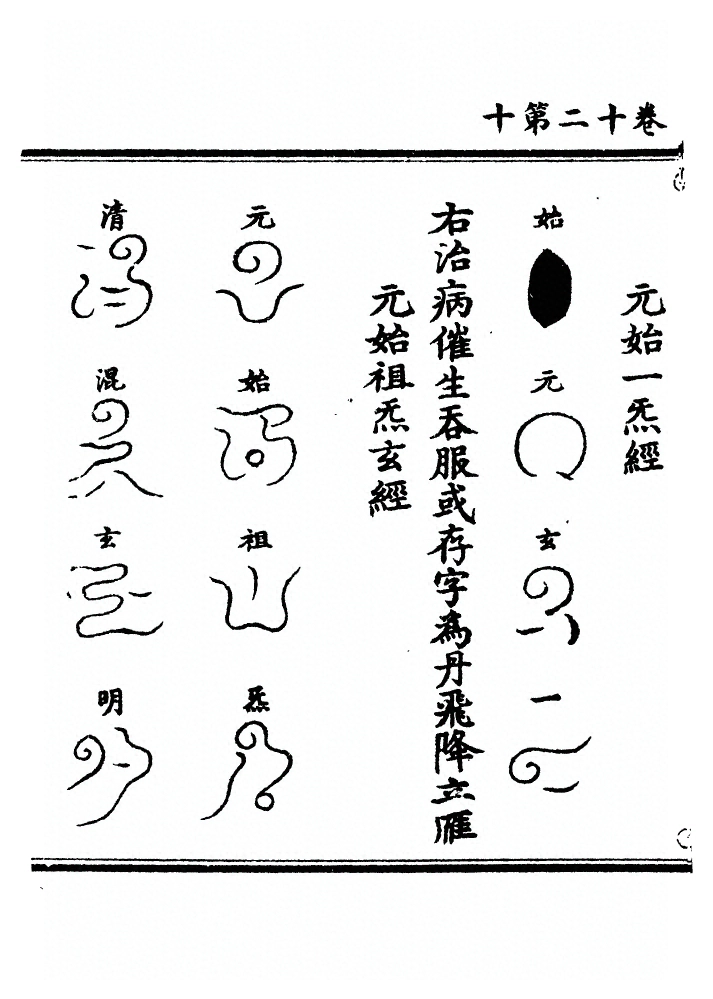 卷十二第十
元始一炁經
始 元 玄 一
右治病催生吞服或存字為丹飛降立應
元始祖炁玄經
元 始 祖 炁
清 混 玄 明